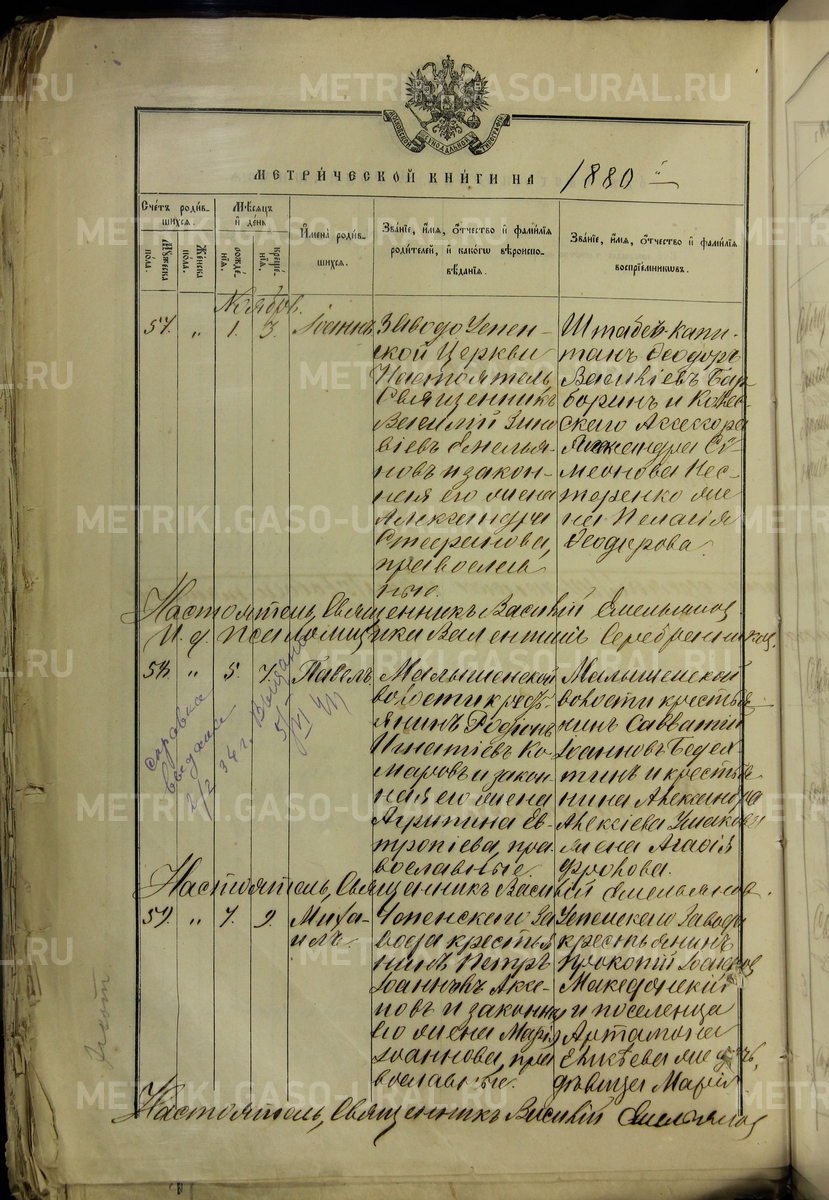 METRIKI.GASO-URAL.RU
МЕТРИ́ЧЕСКОЙ КНИ́ГИ НА 1880 й
Сче́тъ роди́в-
шихся.
Му́жеска
пола.
Же́нска
пола.
Мѣ́сяцъ
и҆ де́нь
рожде́-
нїя.
креще́-
нїя.
И҆мена̀ роди́в-
шихся.
Зва́нїе, и҆́мя, ѻ҆́тчество и҆ фами́лїя
роди́телей, и҆ како́гѡ вѣроиспо-
вѣ́данїя.
Зва́нїе, и҆́мя, ѻ҆́тчество и҆ фами́лїя
воспрїе́мникѡвъ.
Ноябрь.
57. „ 1. 3. Іоаннъ
Заводо Успен-
ской Церкви
Настоятель,
Священникъ
Василій Зина
віевъ Емелья-
новъ и закон-
ная его жена
Александра
Стефанова,
православ
ные.
Штабсъ-капи-
танъ Ѳеодоръ
Васильевъ Бар
боринъ и Коллеж-
скаго Ассессора
Александра Си-
меонова Нес-
теренко же
на Пелагія
Ѳеодорова.
Настоятель, Священникъ Василій Емельяновъ.
И. д. Псаломщика Валентинъ Серебренниковъ.
58. „ 5. 7. Павелъ
Малышенской
волости кресть
янинъ Родіонъ
Игнатіевъ Ко-
маровъ и закон
ная его жена
Агрипина Ев-
тропіева, пра
вославные.
Малышенской
волости крестья
нинъ Савватій
Іоанновъ
и крестья
нина Александра
Алексіева Ушакова
жена Агафія
Фролова.
справка
выдана
2/2 34 г.
Выдано
Настоятель, Священникъ Василій Емельяновъ.
59. „ 7. 9. Миха-
илъ
Успенскаго За
вода крестья
нинъ Петръ
Іоанновъ Аксе-
новъ и законная
его жена Марія
Іоаннова, пра
вославные.
Успенскаго Завода
крестьянинъ
Прокопій Іоанновъ
Македонскій
и поселенца
Артамона
Елисѣева дочь,
дѣвица Марія
Настоятель, Священникъ Василій Емельяновъ